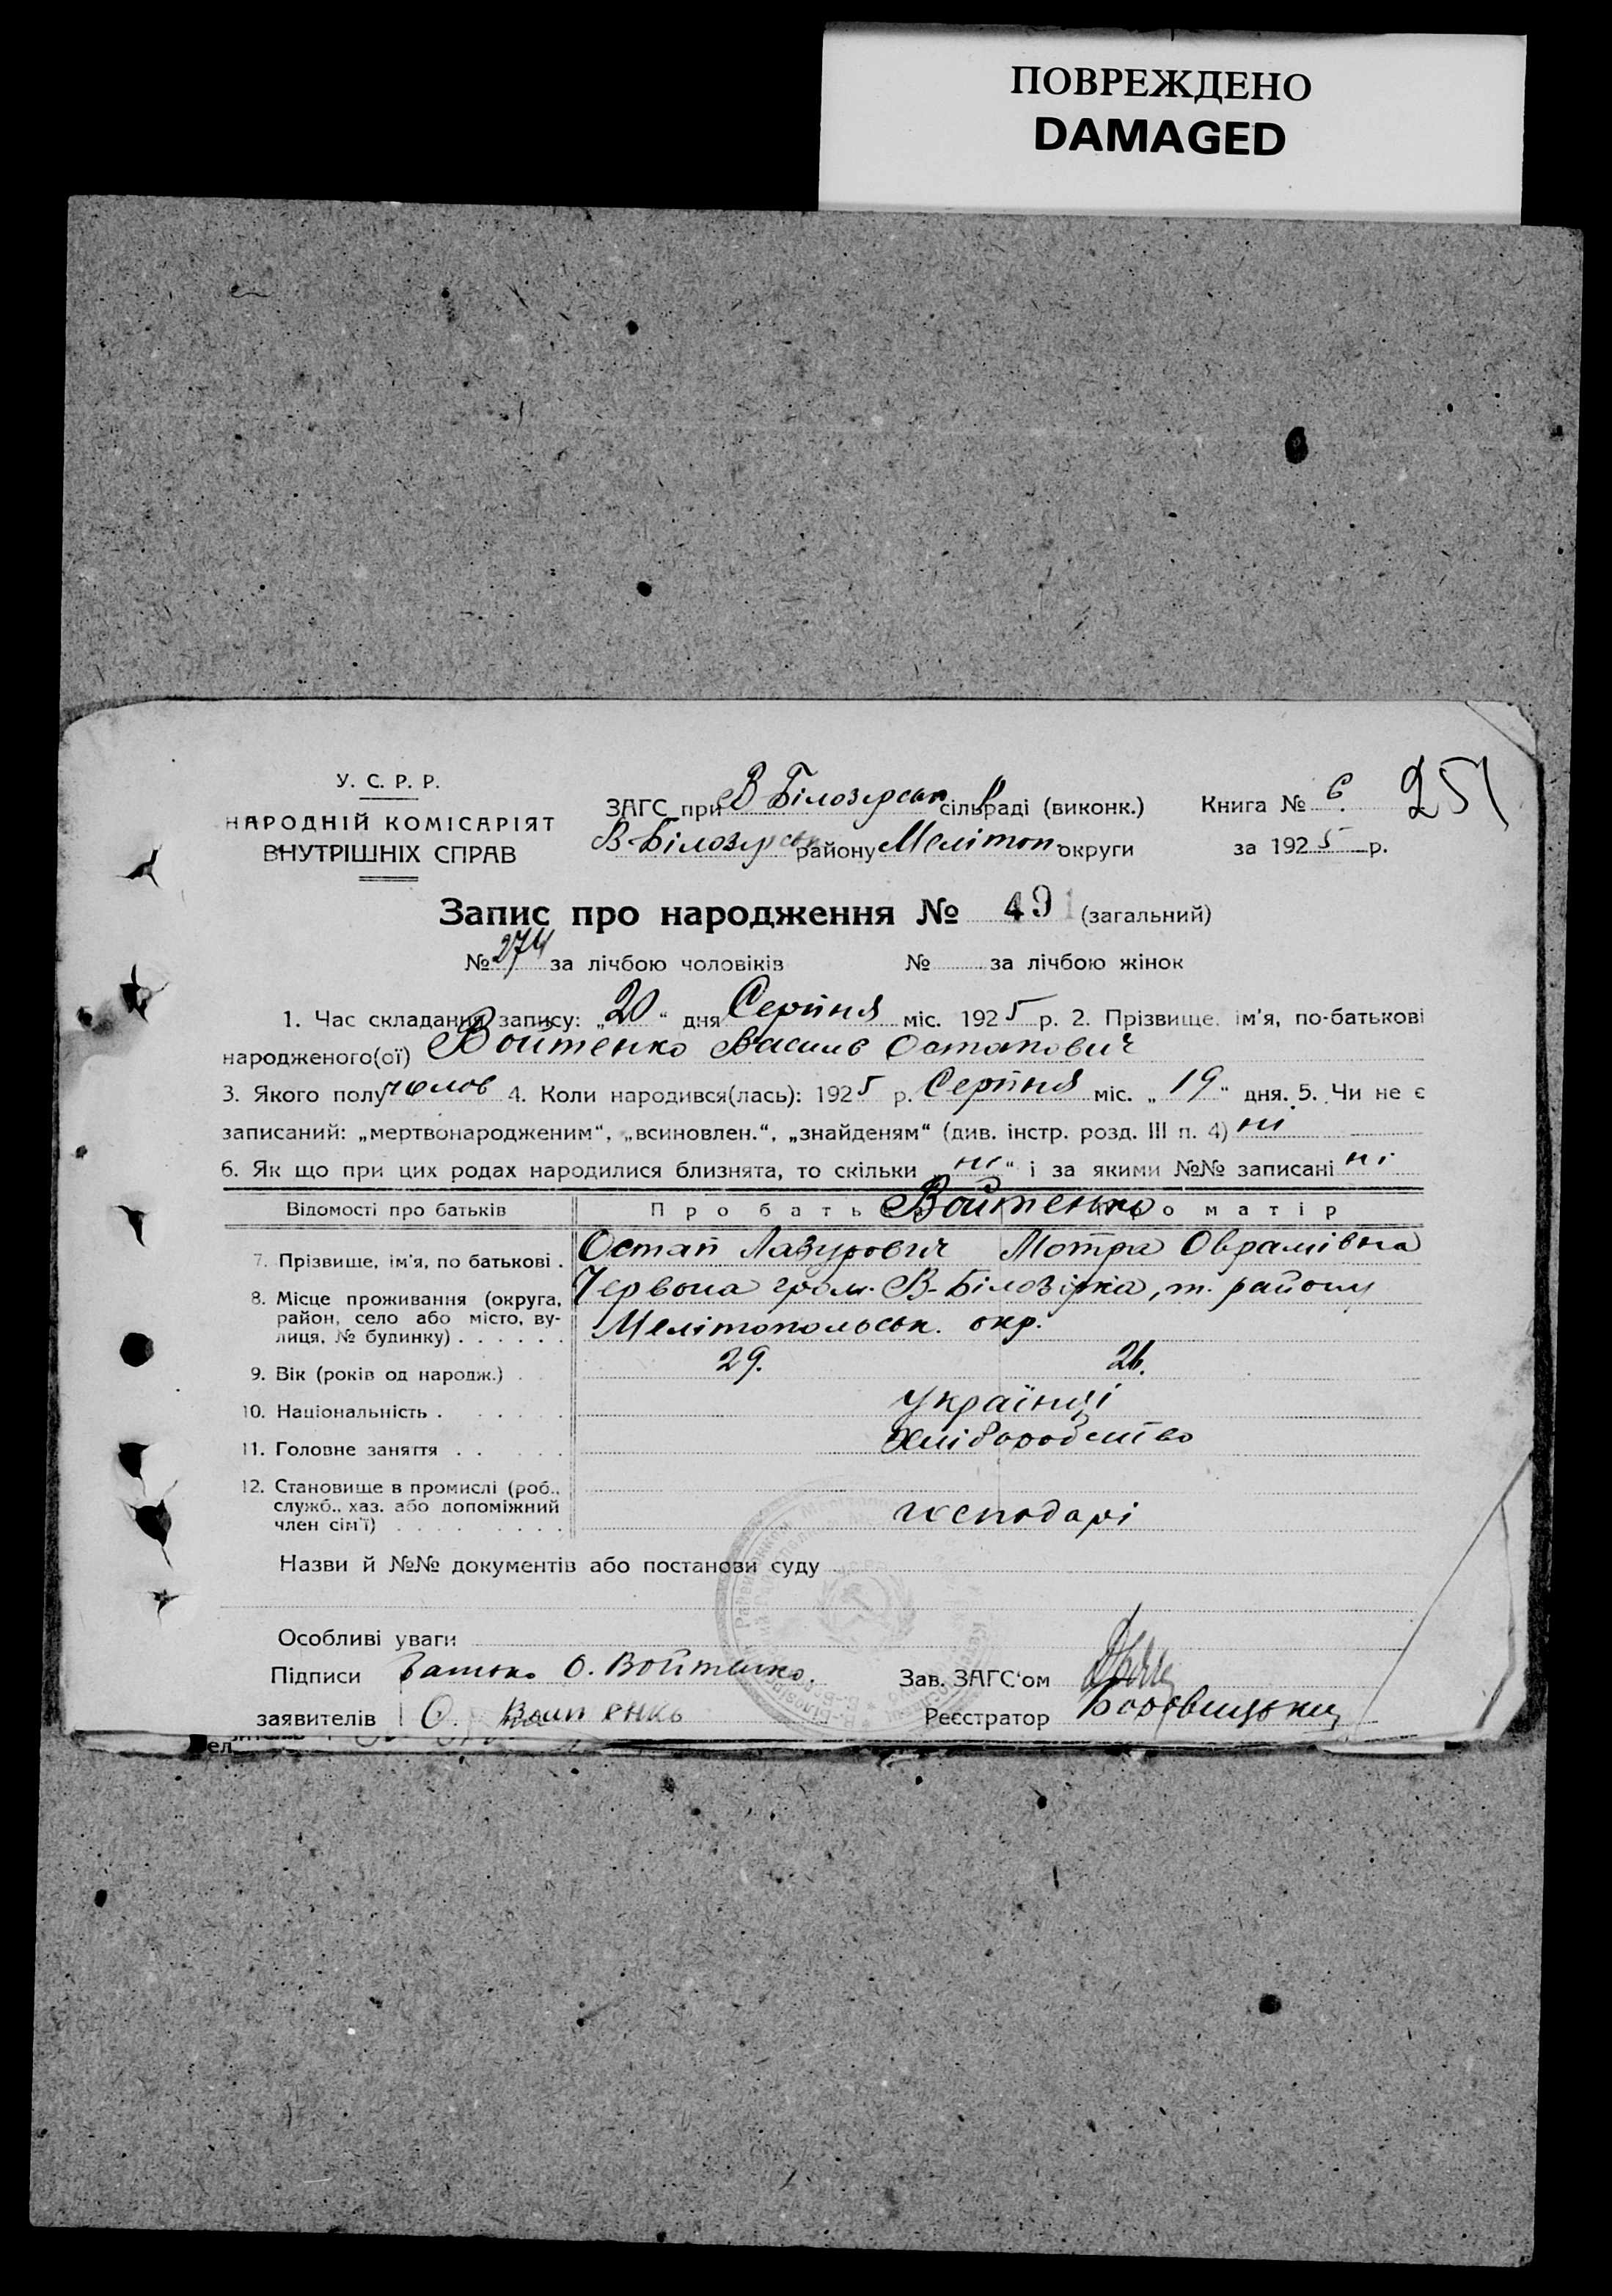 ПОВРЕЖДЕНО
DAMAGED
У. С. Р. Р.
НАРОДНІЙ КОМІСАРІЯТ
ВНУТРІШНІХ СПРАВ
ЗАГС при В Білозерськ сільраді (виконк.)
В-Білозерськ району Мелітоп. округи
Книга № 6. 251
за 1925 р.
Запис про народження № 491 (загальний)
№ 274 за лічбою чоловіків № за лічбою жінок
1. Час складання запису: „20“ дня Серпня міс. 1925 р. 2. Прізвище, ім'я, по-батькові
народженого(ої) Войтенко Василь Остапович
3. Якого полу челов 4. Коли народився(лась): 1925 р. Серпня міс. „19“ дня. 5. Чи не є
записаний: „мертвонародженим“, „всиновлен.“, „знайденям“ (див. інстр. розд. III п. 4) ні
6. Як що при цих родах народилися близнята, то скільки „ні“ і за якими №№ записані ні
Відомості про батьків Про батька Войтенко Про матір
7. Прізвище, ім'я, по батькові . Остап Лазурович Мотря Оврамівна
8. Місце проживання (округа, район, село або місто, вулиця, № будинку) . . . . . . Червона гром. В-Білозірка, т. району
Мелітопольськ. окр.
9. Вік (років од народж.) . 29. 26.
10. Національність . українці
11. Головне заняття . . хліборобство
12. Становище в промислі (роб.,
служб., хаз. або допоміжний
член сім'ї) господарі
Назви й №№ документів або постанови суду
Особливі уваги
Підписи Батько О. Войтенко.
заявителів О. Войтенко
Зав. ЗАГС'ом
Реєстратор Боровицький